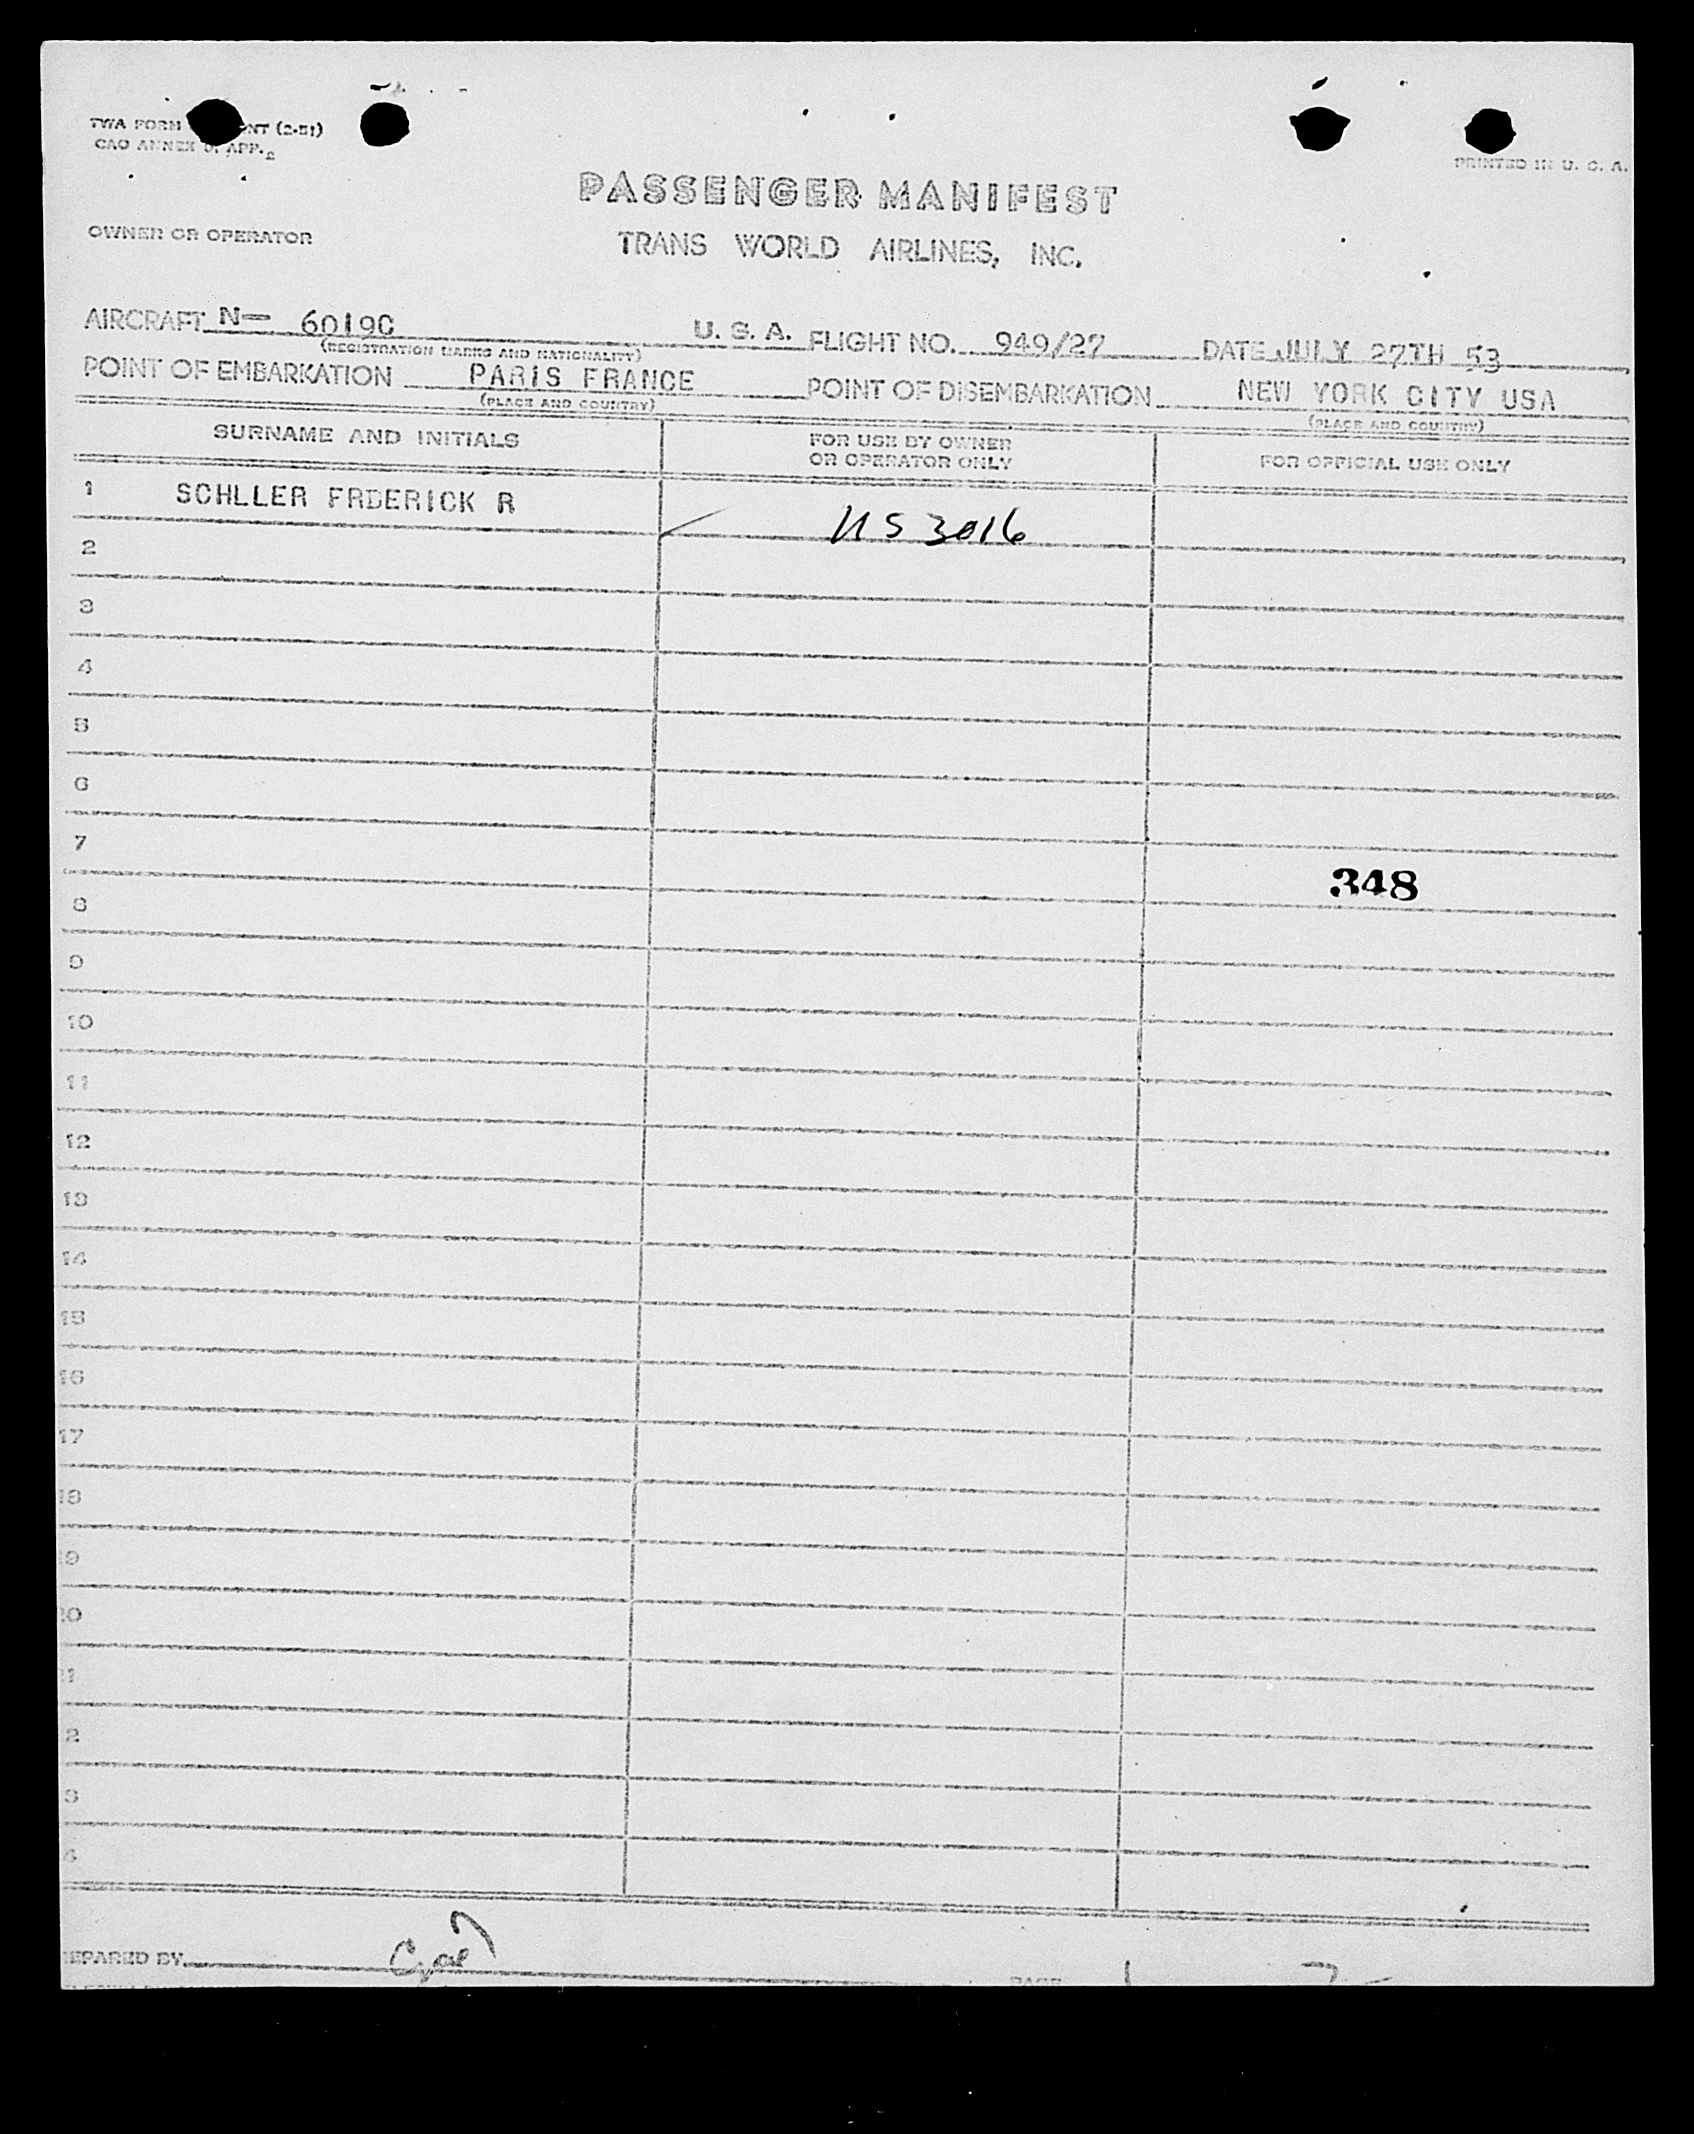 TWA FORM NT (2-51)
CAO ANNEX 9, APP. 2
PRINTED IN U. S. A.
PASSENGER MANIFEST
OWNER OR OPERATOR
TRANS WORLD AIRLINES, INC.
AIRCRAFT N— 6019C U. S. A. FLIGHT NO. 949/27 DATE JULY 27TH 53
(REGISTRATION MARKS AND NATIONALITY)
POINT OF EMBARKATION PARIS FRANCE POINT OF DISEMBARKATION NEW YORK CITY USA
(PLACE AND COUNTRY) (PLACE AND COUNTRY)
SURNAME AND INITIALS FOR USE BY OWNER
OR OPERATOR ONLY FOR OFFICIAL USE ONLY
1 SCHLLER FRDERICK R
US 3016
2
3
4
5
6
7
348
8
9
10
11
12
13
14
15
16
17
18
9
0
1
2
3
4
EPARED BY
PAGE 1